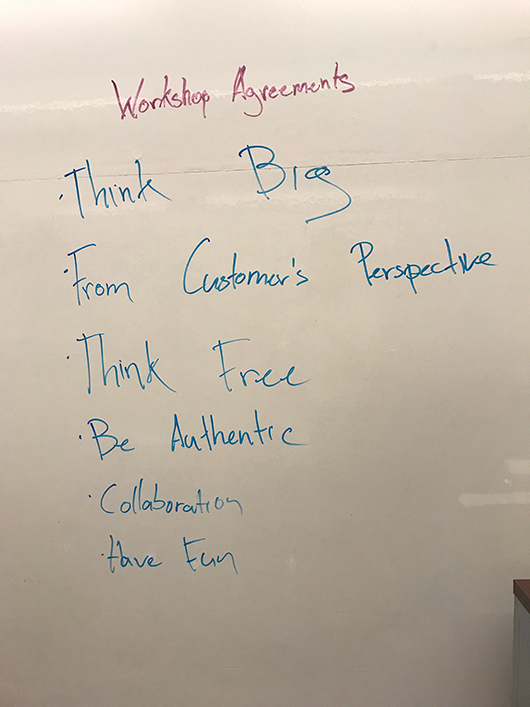 Workshop Agreements
· Think Big
· From Customer's Perspective
· Think Free
· Be Authentic
· Collaboration
· Have Fun